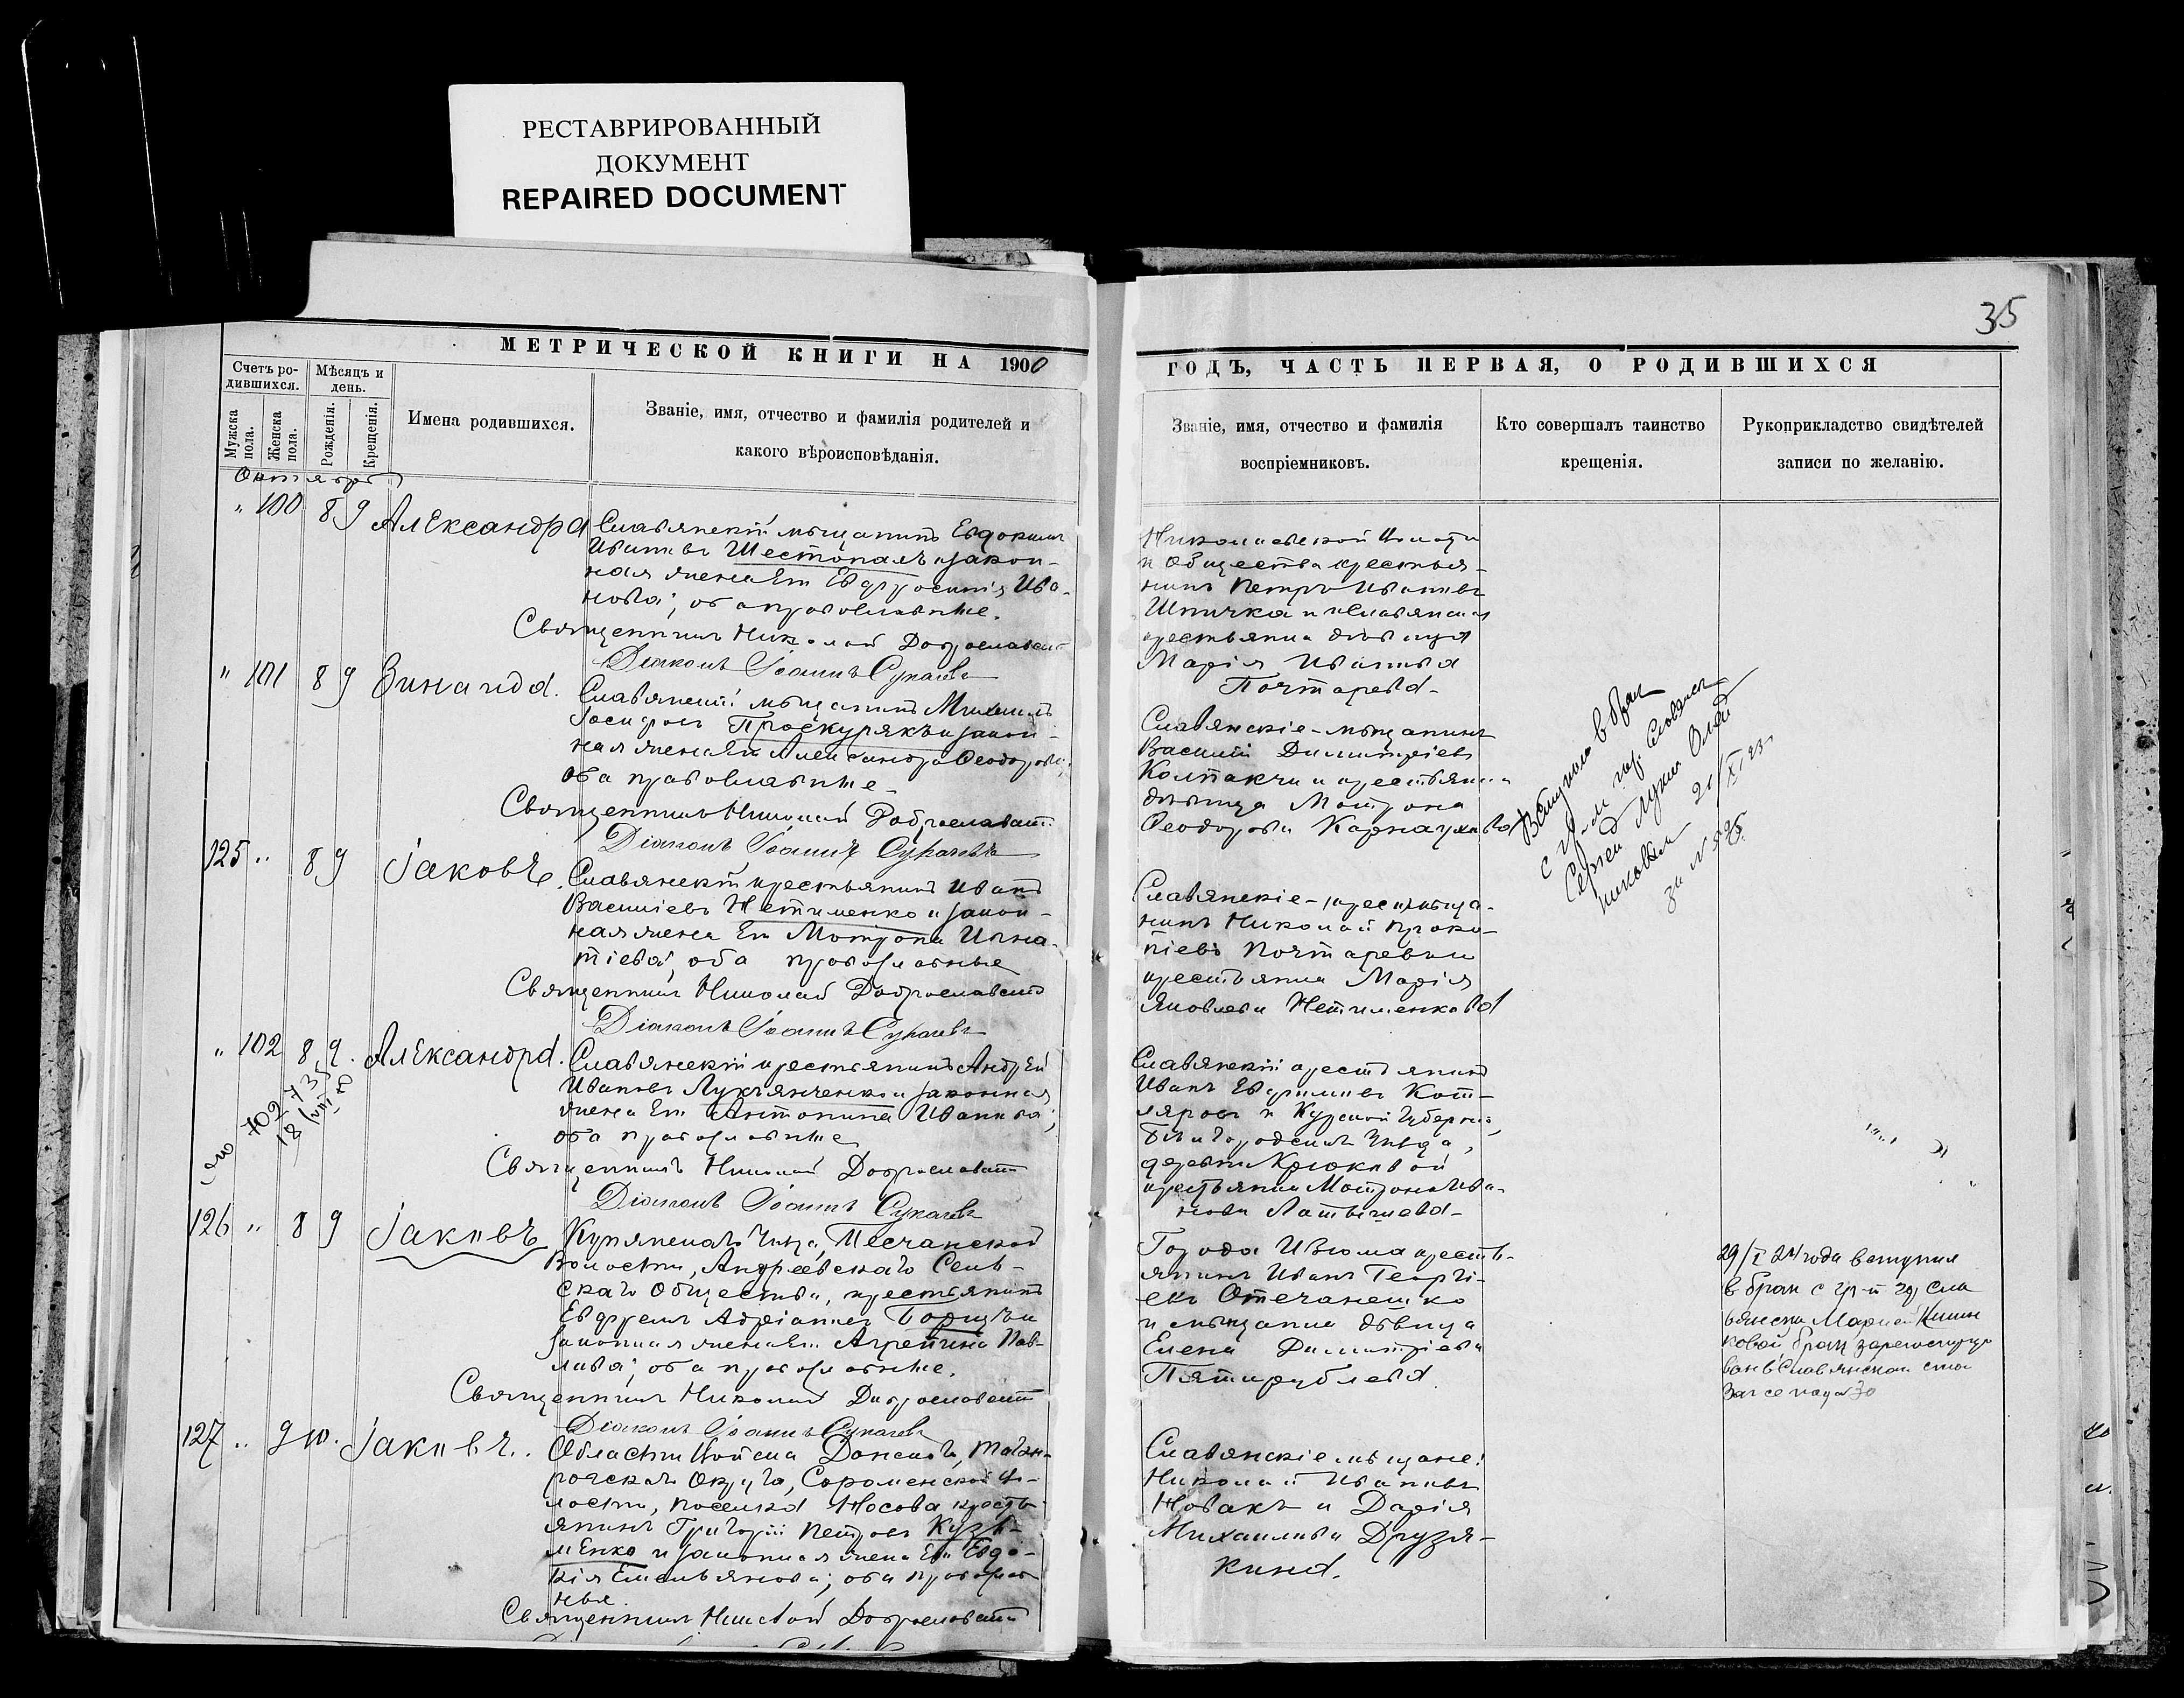 РЕСТАВРИРОВАННЫЙ
ДОКУМЕНТ
REPAIRED DOCUMENT
35
МЕТРИЧЕСКОЙ КНИГИ НА 1900
ГОДЪ, ЧАСТЬ ПЕРВАЯ, О РОДИВШИХСЯ
Счетъ ро-
дившихся.
Мужска
пола.
Женска
пола.
Мѣсяцъ и
день.
Рожденія.
Крещенія.
Имена родившихся.
Званіе, имя, отчество и фамилія родителей и
какого вѣроисповѣданія.
Званіе, имя, отчество и фамилія
воспріемниковъ.
Кто совершалъ таинство
крещенія.
Рукоприкладство свидѣтелей
записи по желанію.
Октябрь
" 100 8 9 Александра
Славянскій мѣщанинъ Евдокимъ
Ивановъ Шестопалъ и закон-
ная жена его Евфросинія Ива-
нова; оба православные.
Священникъ Николай Доброславскій
Діаконъ Іоаннъ Сукачевъ
Николаевской волости
и общества крестья-
нинъ Петръ Ивановъ
Шпичка и Славянская
крестьянка дѣвица
Марія Иванова
Почтарева
" 101 8 9 Зинаида.
Славянскій мѣщанинъ Михаилъ
Іосифовъ Проскурякъ и закон-
ная жена его Александра Ѳеодорова,
оба православные
Священникъ Николай Доброславскій
Діаконъ Іоаннъ Сукачевъ
Славянскіе мѣщанинъ
Василій Димитріевъ
Колпакчи и крестьянка
дѣвица Мотрона
Ѳеодорова Карнаухова
Вступила в брак
с гр-м гор. Славянск
Сергей Лукич Олей
никовым 21/XI 23
за № 525
125 " 8 9 Іаковъ
Славянскій крестьянинъ Иванъ
Василіевъ Нетименко и закон-
ная жена его Мотрона Игна-
тіева; оба православные
Священникъ Николай Доброславскій
Діаконъ Іоаннъ Сукачевъ
Славянскіе мѣща-
нинъ Николай Проко-
піевъ Почтаревъ и
крестьянка Марія
Яковлева Нетименкова
" 102 8 9. Александра.
Славянскій крестьянинъ Андрей
Ивановъ Лукъянченко и законная
жена его Антонина Иванова;
оба православные
Священникъ Николай Доброславскій
Діаконъ Іоаннъ Сукачевъ
Славянскій крестьянинъ
Иванъ Евфимовъ Кот-
ляровъ и Курской Губерніи,
Бѣлгородскаго Уѣзда,
деревни Крюковой
крестьянка Мотрона Ива-
нова Латышева
126 " 8 9 Іаковъ
Купянскаго Уѣзда, Песчанской
Волости, Андреевскаго Сель-
скаго Общества, крестьянинъ
Евфремъ Адріановъ Борщъ и
законная жена его Агрепина Пав-
лова; оба православные.
Священникъ Николай Доброславскій
Діаконъ Іоаннъ Сукачевъ
Города Изюма крестъ-
янинъ Иванъ Георгі-
евъ Отечанешко
и мѣщанка дѣвица
Елена Димитріева
Пятирублева
29/I 24 года вступил
в брак с гр-й гор Сла
вянска
брак зарегистриро
ван в Славянском
127 " 9 10. Іаковъ.
Области Войска Донского, Таган-
рогскаго Округа, Во-
лости, поселка Носова кресть-
янинъ Григорій Петровъ Кузь-
менко и законная жена его Евдо-
кія Емельянова; оба православ-
ные.
Священникъ Николай Доброславскій
Славянскіе мѣщане:
Николай Ивановъ
Новакъ и Дарія
Михаилова Друзя-
кина.